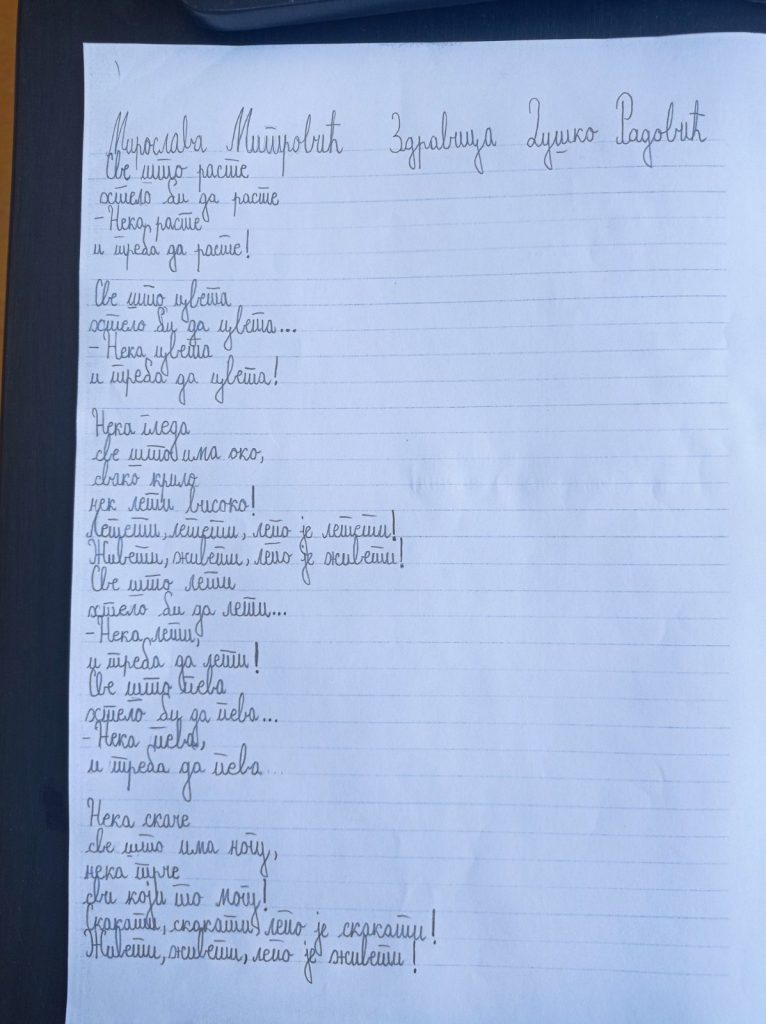 Мирослава Митровић Здравица Душко Радовић
Све што расте
хтело би да расте
- Нека расте
и треба да расте!
Све што цвета
хтело би да цвета...
- Нека цвета
и треба да цвета!
Нека гледа
све што има око,
свако крило
нек лети високо!
Летети, летети, лепо је летети!
Живети, живети, лепо је живети!
Све што лети
хтело би да лети...
- Нека лети,
и треба да лети!
Све што пева
хтело би да пева...
- Нека пева,
и треба да пева...
Нека скаче
све што има ногу,
нека трче
сви који то могу!
Скакати, скакати, лепо је скакати!
Живети, живети, лепо је живети!